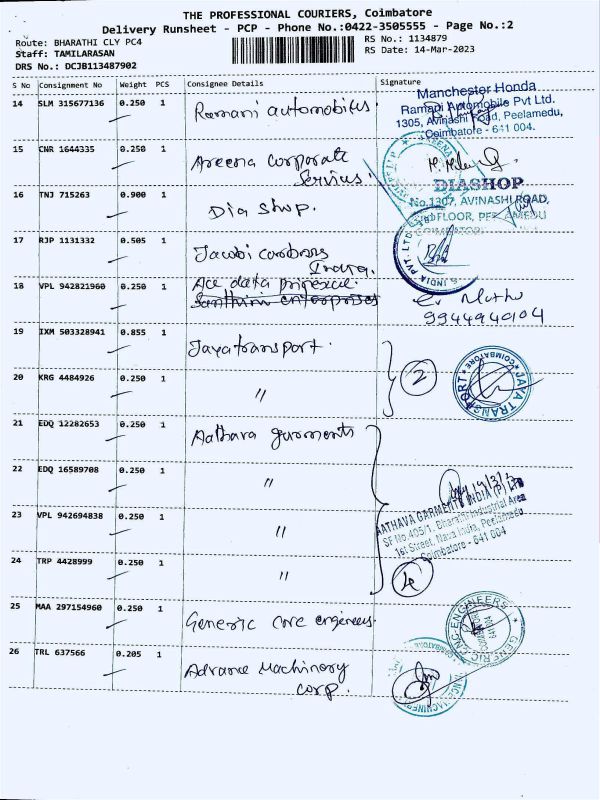 THE PROFESSIONAL COURIERS, Coimbatore
Delivery Runsheet - PCP - Phone No.:0422-3505555 - Page No.:2
Route: BHARATHI CLY PC4
RS No.: 1134879
Staff: TAMILARASAN
RS Date: 14-Mar-2023
DRS No.: DCJB113487902
S No Consignment No Weight PCS Consignee Details Signature
14 SLM 315677136 0.250 1 Ramani automobiles
Manchester Honda
Ramani Automobile Pvt Ltd.
1305, Avinashi Road, Peelamedu,
Coimbatore - 641 004.
15 CNR 1644335 0.250 1 Areena corporate
Servius.
16 TNJ 715263 0.900 1 Dia Shop.
DIASHOP
No.1307, AVINASHI ROAD,
FLOOR, PEELAMEDU
COIMBATORE
17 RJP 1131332 0.505 1 Jacobi carbons
India.
INDIA PVT. LTD
18 VPL 942821960 0.250 1 Ace data
Santhini enterprises
9944940104
19 IXM 503328941 0.855 1 Jayatransport.
20 KRG 4484926 0.250 1 "
2
JAYA TRANSPORT
COIMBATORE
21 EDQ 12282653 0.250 1 Aathava garments
22 EDQ 16589708 0.250 1 "
23 VPL 942694838 0.250 1 "
AATHAVA GARMENTS INDIA (P) LTD
SF No.405/1, Bharathi Industrial Area
1st Street, Nava India, Peelamedu
Coimbatore - 641 004
24 TRP 4428999 0.250 1 "
4
25 MAA 297154960 0.250 1 Generic core engineers
GENERIC CNC ENGINEERS
26 TRL 637566 0.205 1 Advance Machinery
corp.